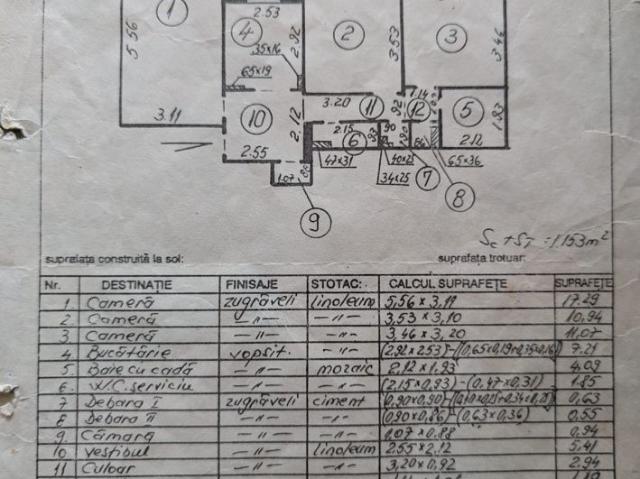 2.53
1
4
2
3
5.56
2.92
3.53
3.46
35×16
65×19
3.20
11
1.14
12
5
10
2.12
92
1.93
3.11
2.15
93
90
6
2.12
2.55
47×31
40×25
65×36
1.07
34×25
7
8
9
Sc + ST = 1.153 m²
suprafața construită la sol: suprafața trotuar:
Nr. DESTINAȚIE FINISAJE STOTAC: CALCUL SUPRAFEȚE SUPRAFEȚE
1 Cameră zugrăveli linoleum 5,56 × 3,11 17.29
2 Cameră —"— —"— 3,53 × 3,10 10,94
3 Cameră —"— —"— 3,46 × 3,20 11,07
4 Bucătărie vopsit. —"— (2,92×2,53)-(0,65×0,19+0,35×0,16) 7.21
5 Baie cu cadă —"— mozaic 2,12 × 1,93 4,09
6 W.C. serviciu —"— —"— (2,15×0,93)-(0,47×0,31) 1.85
7 Debara I zugrăveli ciment 0,63
8 Debara II —"— —"— (0,90×0,86)-(0,63×0,36) 0,55
9 Cămară —"— —"— 1,07 × 0,88 0,94
10 vestibul —"— linoleum 2.55 × 2,12 5,41
11 Culoar —"— —"— 3,20 × 0,92 2,94